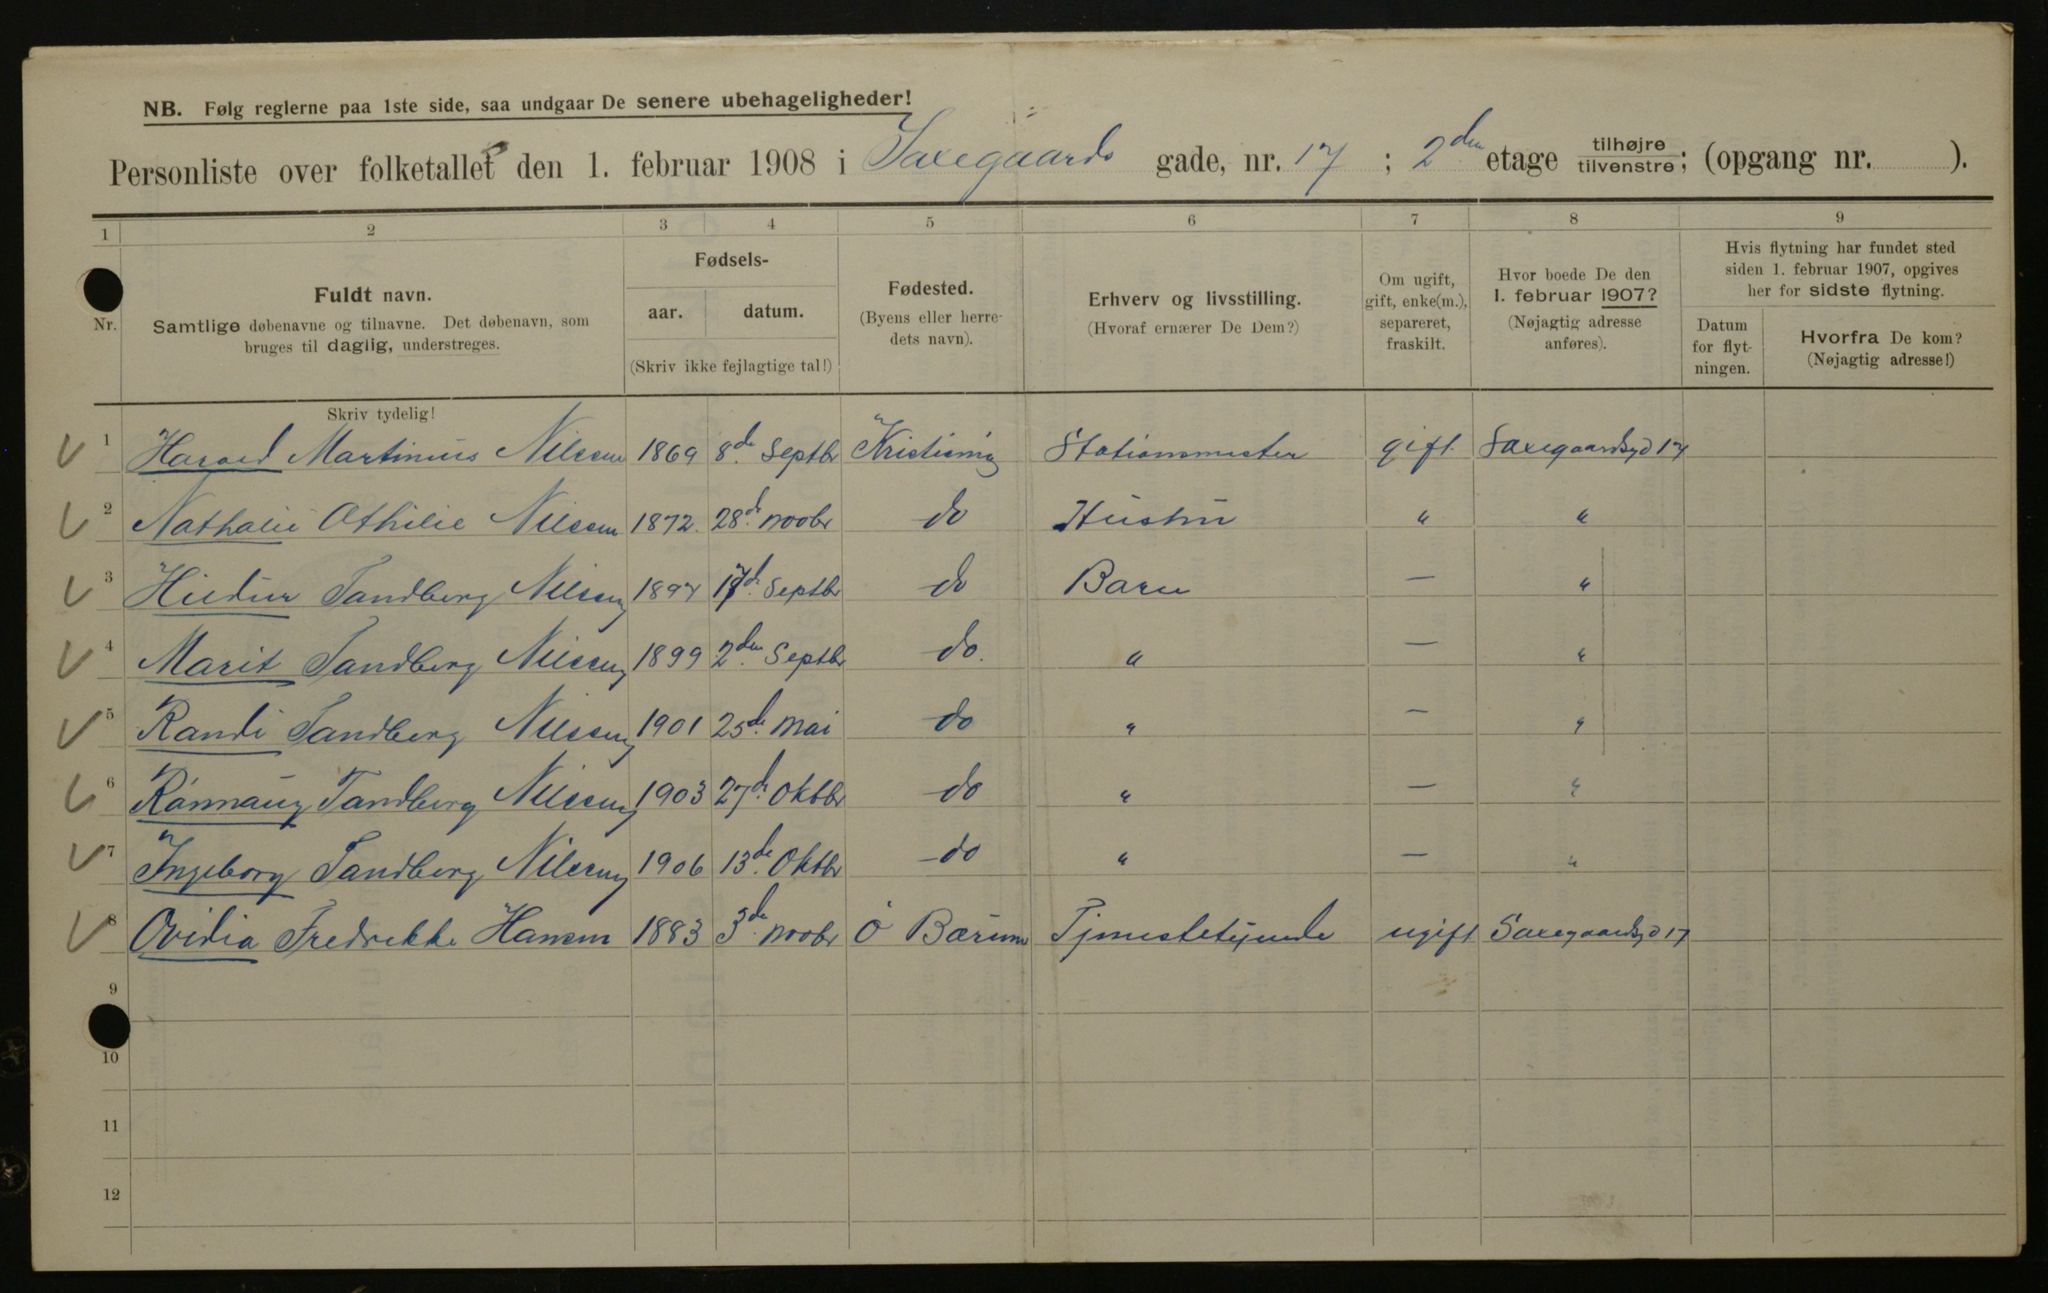 NB. Følg reglerne paa 1ste side, saa undgaar De senere ubehageligheder!
Personliste over folketallet den 1. februar 1908 i Saxegaards gade, nr. 17; 2den etage tilhøjre tilvenstre; (opgang nr. ).
1 2 3 4 5 6 7 8 9
Nr. Fuldt navn. Samtlige døbenavne og tilnavne. Det døbenavn, som bruges til daglig, understreges.
Fødsels- aar. datum. (Skriv ikke fejlagtige tal!)
Fødested. (Byens eller herredets navn).
Erhverv og livsstilling. (Hvoraf ernærer De Dem?)
Om ugift, gift, enke(m.), separeret, fraskilt.
Hvor boede De den 1. februar 1907? (Nøjagtig adresse anføres).
Hvis flytning har fundet sted siden 1. februar 1907, opgives her for sidste flytning.
Datum for flytningen.
Hvorfra De kom? (Nøjagtig adresse!)
Skriv tydelig!
1 Harald Martinius Nilssen 1869 8de Septbr Kristiania Stationsmester gift. Saxegaardsgd 17
2 Nathalie Othilie Nilssen 1872. 28de novbr do Hustru " "
3 Tandberg Nilssen 1897 17de Septbr do Barn — "
4 Marit Tandberg Nilssen 1899 2den Septbr do. " — "
5 Randi Tandberg Nilssen 1901 25de Mai do " — "
6 Rannaug Tandberg Nilssen 1903 27de Oktbr do " — "
7 Ingeborg Tandberg Nilssen 1906 13de Oktbr do " — "
8 Ovidia Fredrekke Hansen 1883 3de novbr Ø Bærum Tjenestetjende ugift Saxegaardsgd 17
9
10
11
12